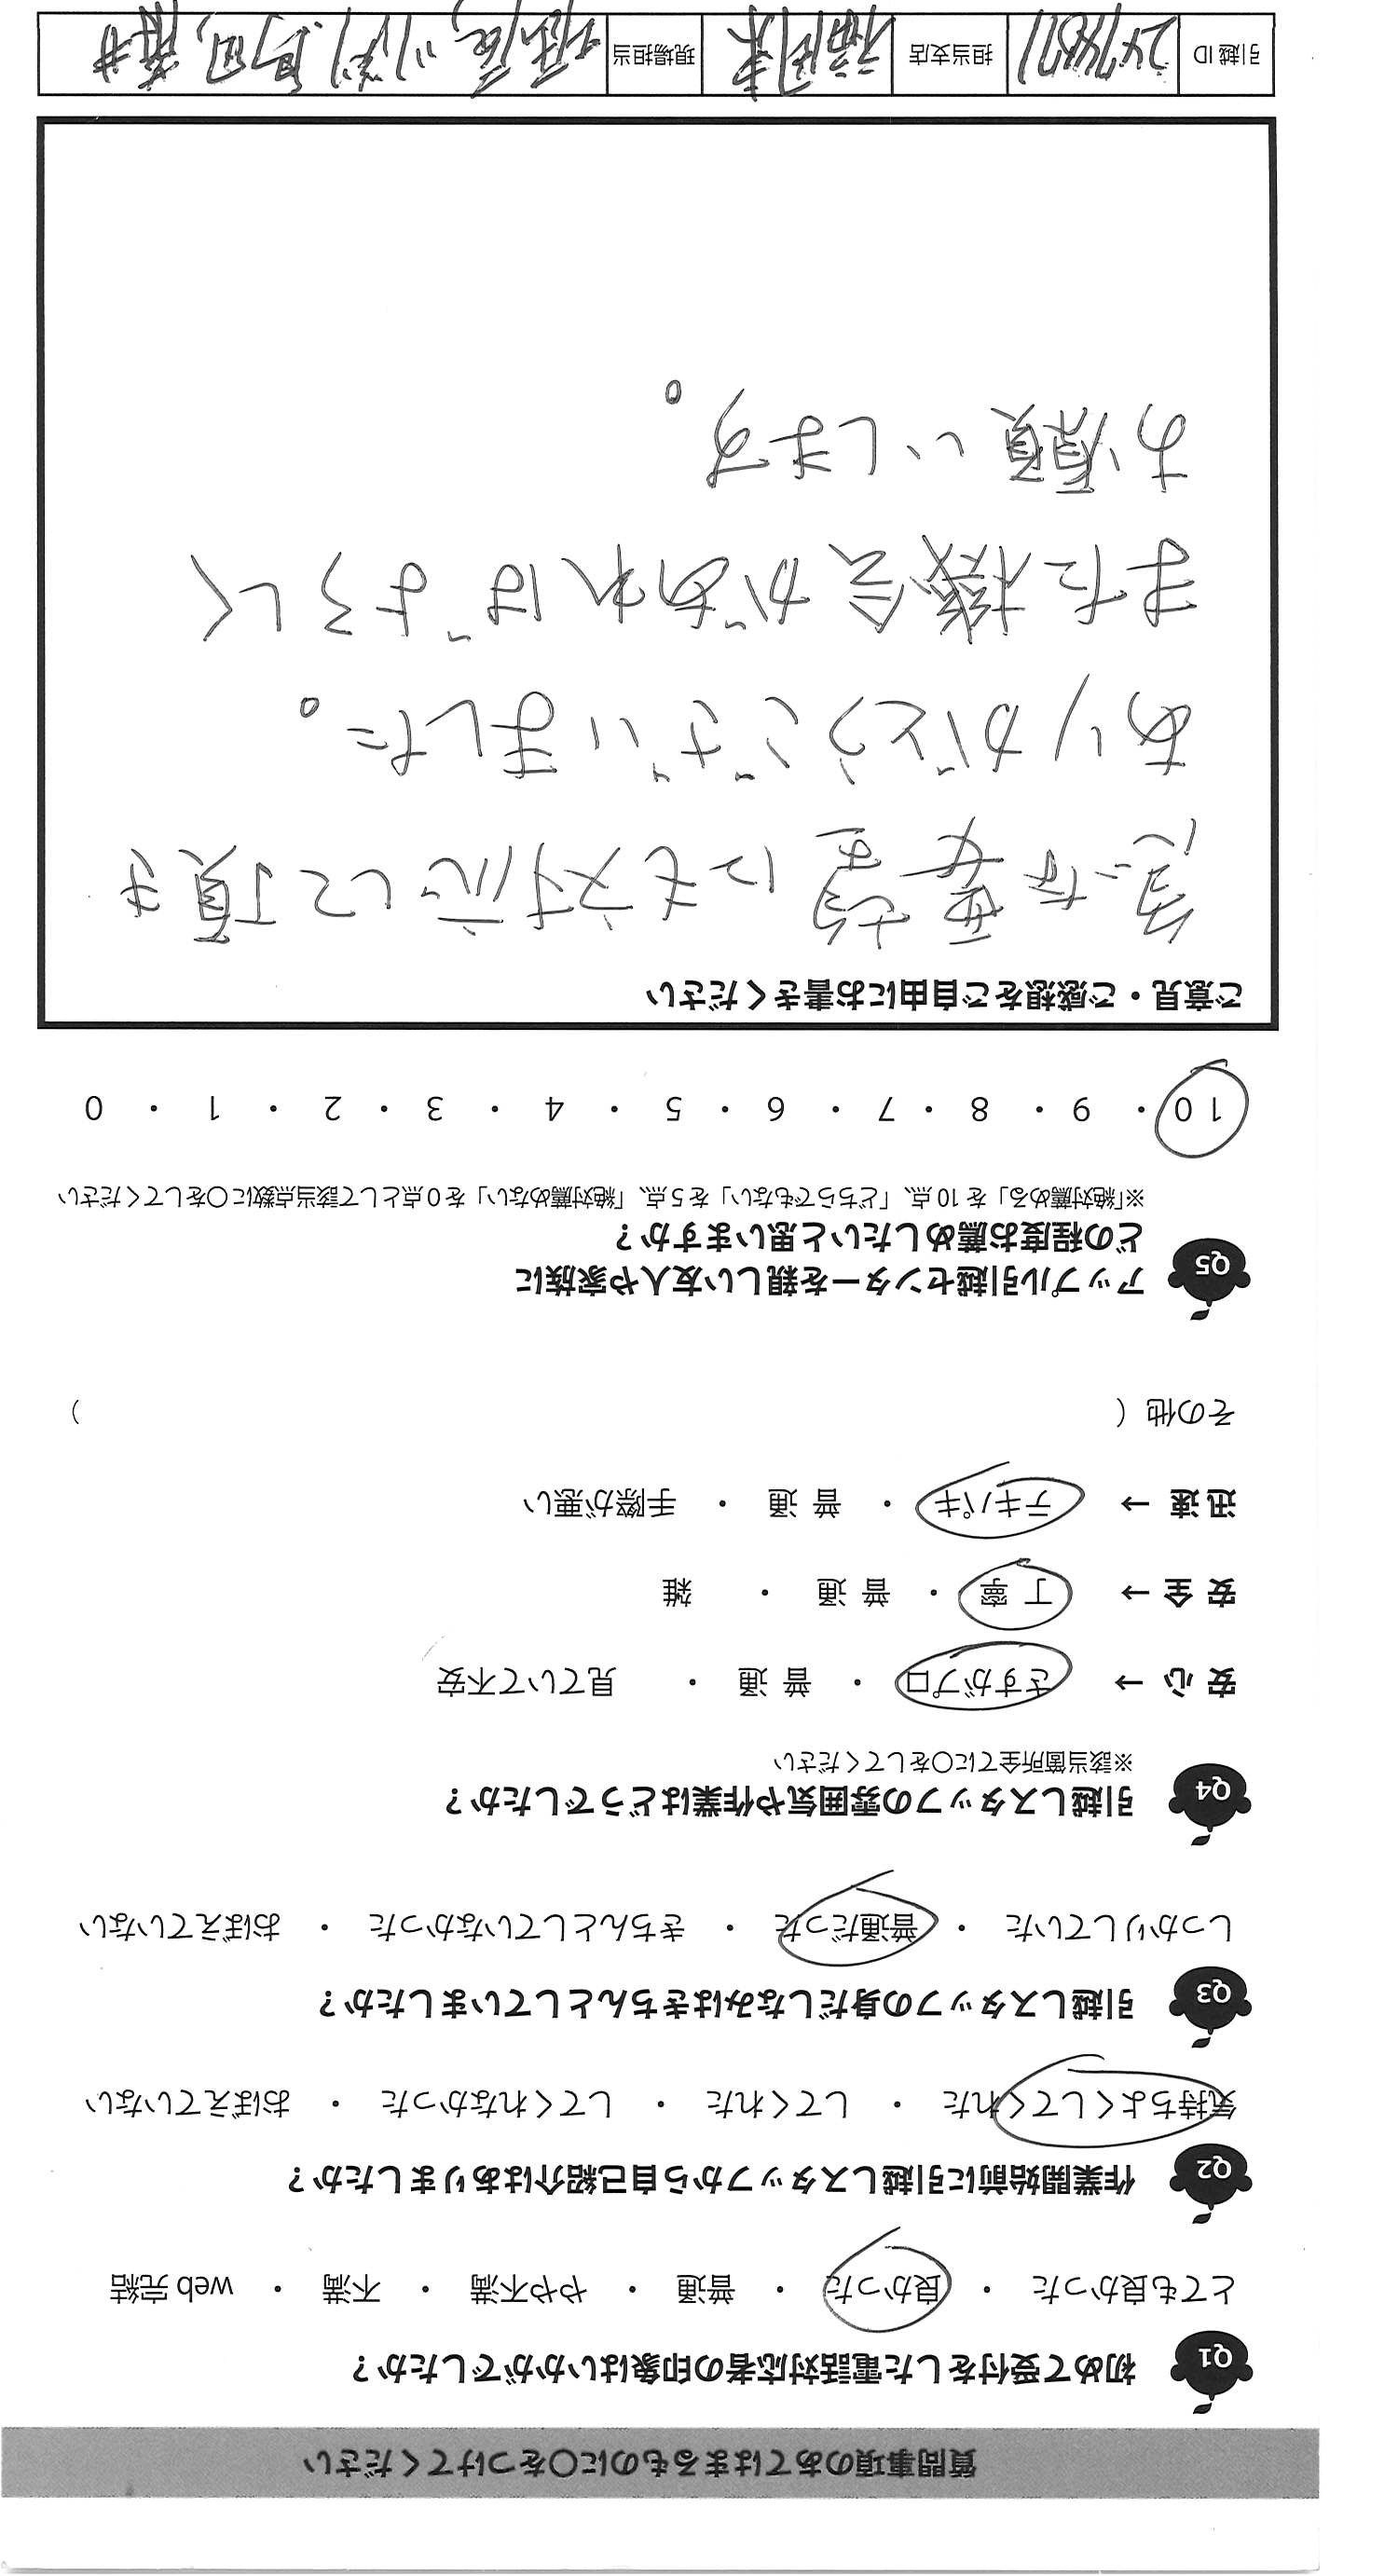 質問事項のあてはまるものに○をつけてください
Q1 初めて受付をした電話対応者の印象はいかがでしたか?
とても良かった ・ 良かった ・ 普通 ・ やや不満 ・ 不満 ・ web 完結
Q2 作業開始前に引越しスタッフから自己紹介はありましたか?
気持ちよくしてくれた ・ してくれた ・ してくれなかった ・ おぼえていない
Q3 引越しスタッフの身だしなみはきちんとしていましたか?
しっかりしていた ・ 普通だった ・ きちんとしていなかった ・ おぼえていない
Q4 引越しスタッフの雰囲気や作業はどうでしたか?
※該当箇所全てに○をしてください
安 心 → さすがプロ ・ 普 通 ・ 見ていて不安
安 全 → 丁 寧 ・ 普 通 ・ 雑
迅 速 → テキパキ ・ 普 通 ・ 手際が悪い
その他 ( )
Q5 アップル引越センターを親しい友人や家族に
どの程度お薦めしたいと思いますか?
※「絶対薦める」を 10 点、「どちらでもない」を 5 点、「絶対薦めない」を 0 点として該当点数に○をしてください
10 ・ 9 ・ 8 ・ 7 ・ 6 ・ 5 ・ 4 ・ 3 ・ 2 ・ 1 ・ 0
ご意見・ご感想をご自由にお書きください
急な要望にも対応して頂き
ありがとうございました。
また機会があればよろしく
お願いします。
引越 ID 担当支店 福岡東 現場担当